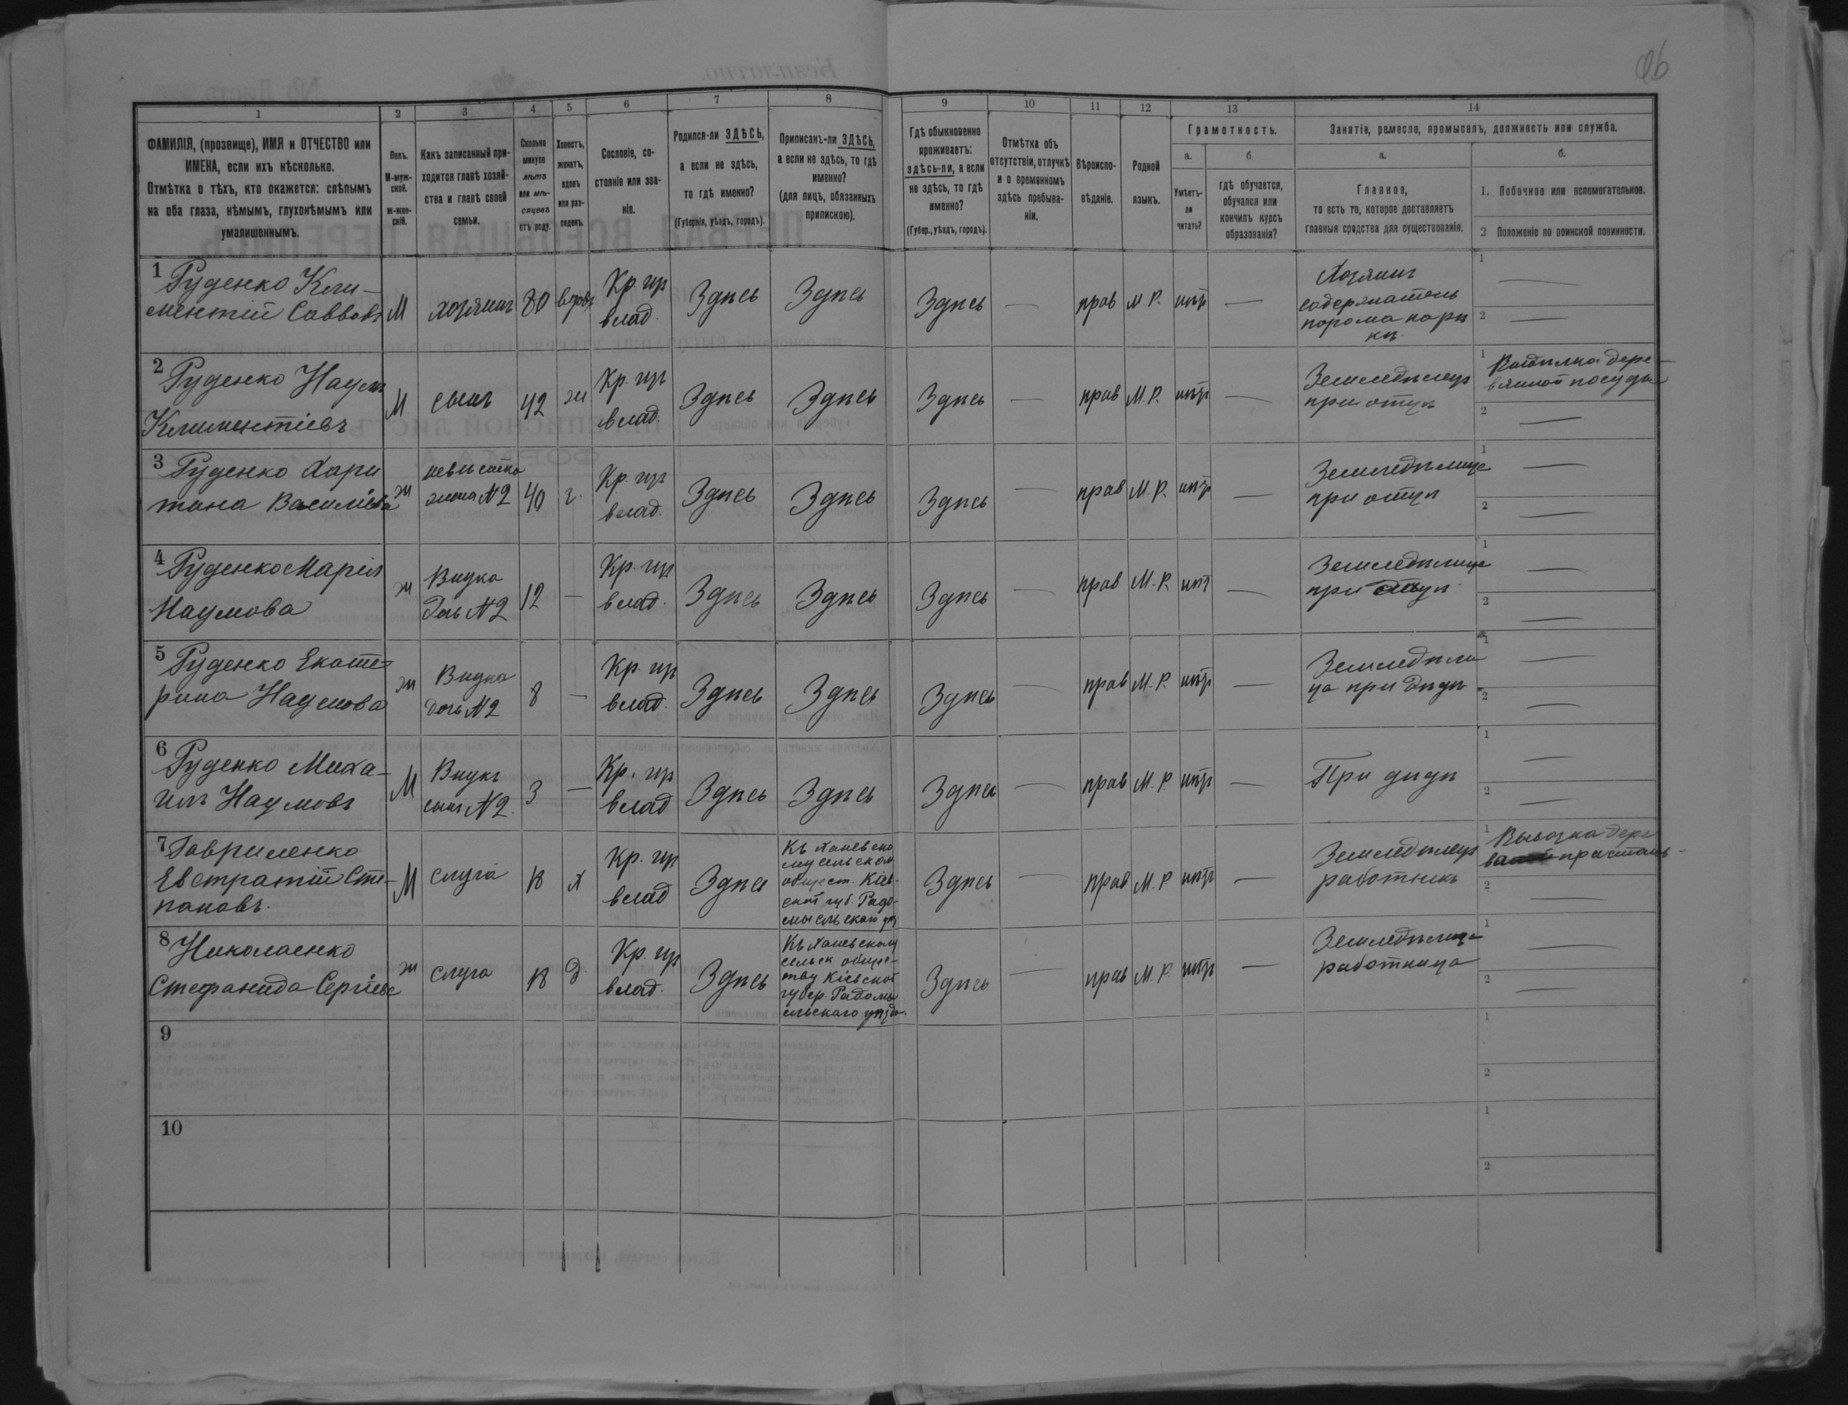 1 2 3 4 5 6 7 8 9 10 11 12 13 14
ФАМИЛІЯ, (прозвище), ИМЯ и ОТЧЕСТВО или
ИМЕНА, если ихъ нѣсколько.
Отмѣтка о тѣхъ, кто окажется: слѣпымъ
на оба глаза, нѣмымъ, глухонѣмымъ или
умалишеннымъ.
Полъ.
М-муж-
ской.
Ж-жен-
скій.
Какъ записанный при-
ходится главѣ хозяй-
ства и главѣ своей
семьи.
Сколько
минуло
лѣтъ
или мѣ-
сяцевъ
отъ роду.
Холостъ,
женатъ,
вдовъ
или раз-
веденъ.
Сословіе, со-
стояніе или зва-
ніе.
Родился-ли ЗДѢСЬ,
а если не здѣсь,
то гдѣ именно?
(Губернія, уѣздъ, городъ).
Приписанъ-ли ЗДѢСЬ,
а если не здѣсь, то гдѣ
именно?
(для лицъ, обязанныхъ
припискою).
Гдѣ обыкновенно
проживаетъ:
здѣсь-ли, а если
не здѣсь, то гдѣ
именно?
(Губер., уѣздъ, городъ).
Отмѣтка объ
отсутствіи, отлучкѣ
и о временномъ
здѣсь пребыва-
ніи.
Вѣроиспо-
вѣданіе.
Родной
языкъ.
Грамотность.
а. б
Умѣетъ-
ли
читать?
гдѣ обучается,
обучался или
кончилъ курсъ
образованія?
Занятія, ремесло, промыселъ, должность или служба.
а. б.
Главное,
то есть то, которое доставляетъ
главныя средства для существованія.
1. Побочное или вспомогательное.
2 Положеніе по воинской повинности.
1 Руденко Кли-
ментій Саввовъ М хозяинъ 80 вдовъ Кр. пр
влад. Здѣсь Здѣсь Здѣсь — прав М.Р. нѣт —
Хозяинъ
содержатель
парома
1 —
2 —
2 Руденко Наумъ
Климентіевъ М сынъ 42 ж Кр. пр
влад. Здѣсь Здѣсь Здѣсь — прав М.Р. нѣт —
Земледѣлецъ
при отцѣ
1 дере-
вянной посуды
2 —
3 Руденко Хари
тина Васильева ж невѣстка
жена №2 40 з. Кр. пр
влад. Здѣсь Здѣсь Здѣсь — прав М.Р. нѣт —
Земледѣлица
при отцѣ
1 —
2 —
4 Руденко Марія
Наумова ж Внука
дочь №2 12 — Кр. пр
влад. Здѣсь Здѣсь Здѣсь — прав М.Р. нѣт —
Земледѣлица
при
1 —
2 —
5 Руденко Екате-
рина Наумова ж Внука
дочь №2 8 — Кр. пр
влад. Здѣсь Здѣсь Здѣсь — прав М.Р. нѣт —
Земледѣли
ца при дѣдѣ
1 —
2 —
6 Руденко Миха-
илъ Наумовъ М Внукъ
сынъ №2. 3 — Кр. пр
влад Здѣсь Здѣсь Здѣсь — прав М.Р. нѣт —
При дѣдѣ
1 —
2 —
7 Гавриленко
Евстратій Сте-
пановъ. М слуга 18 х Кр. пр
влад Здѣсь
Къ
му сельском
общест. Кіев-
ской губ. Радо-
мысльскаго уѣз
Здѣсь — прав М.Р нѣтъ —
Земледѣлецъ
работникъ
1 Вывозка дере
пристань
2 —
8 Николаенко
Стефанида Сергіева ж слуга 18 д. Кр. пр
влад. Здѣсь
Къ
сельск обще-
тву Кіевской
губер. Радомы
сльскаго уѣзда
Здѣсь — прав М.Р. нѣтъ —
Земледѣлица
работница
1 —
2 —
9
1
2
10
1
2